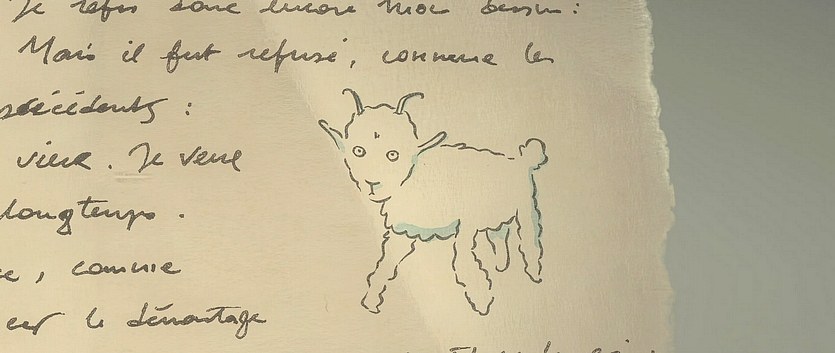 Je refis donc encore mon dessin :
Mais il fut refusé, comme les
précédents :
vieux. Je veux
longtemps.
, comme
le démontage